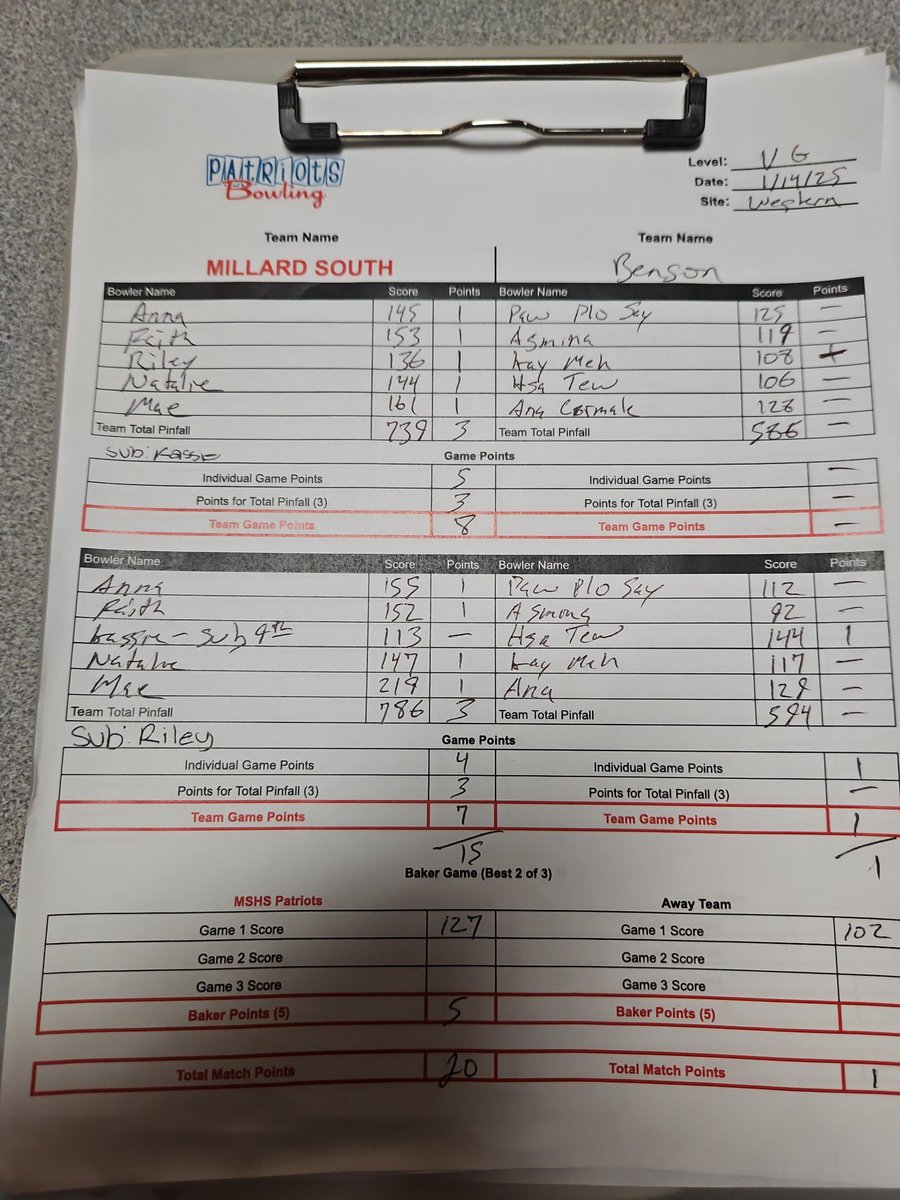 PATRIOTS
Bowling
Level: VG
Date: 1/14/25
Site: Western
Team Name Team Name
MILLARD SOUTH Benson
Bowler Name Score Points Bowler Name Score Points
Anna 145 1 Paw Plo Say 125 —
Faith 153 1 Asmina 119 —
Riley 136 1 Kay Meh 108 —
Natalie 144 1 Hsa Tew 106 —
Mae 161 1 Ana 128 —
Team Total Pinfall 739 3 Team Total Pinfall 586 —
Sub: Kassie Game Points
Individual Game Points 5 Individual Game Points —
Points for Total Pinfall (3) 3 Points for Total Pinfall (3) —
Team Game Points 8 Team Game Points —
Bowler Name Score Points Bowler Name Score Points
Anna 155 1 Paw Plo Say 112 —
Faith 152 1 Asmina 92 —
Kassie - Sub 9th 113 — Hsa Tew 144 1
Natalie 147 1 Kay Meh 117 —
Mae 219 1 Ana 129 —
Team Total Pinfall 786 3 Team Total Pinfall 594 —
Sub: Riley Game Points
Individual Game Points 4 Individual Game Points 1
Points for Total Pinfall (3) 3 Points for Total Pinfall (3) —
Team Game Points 7 Team Game Points 1
15 1
Baker Game (Best 2 of 3)
MSHS Patriots Away Team
Game 1 Score 127 Game 1 Score 102
Game 2 Score Game 2 Score
Game 3 Score Game 3 Score
Baker Points (5) 5 Baker Points (5)
Total Match Points 20 Total Match Points 1